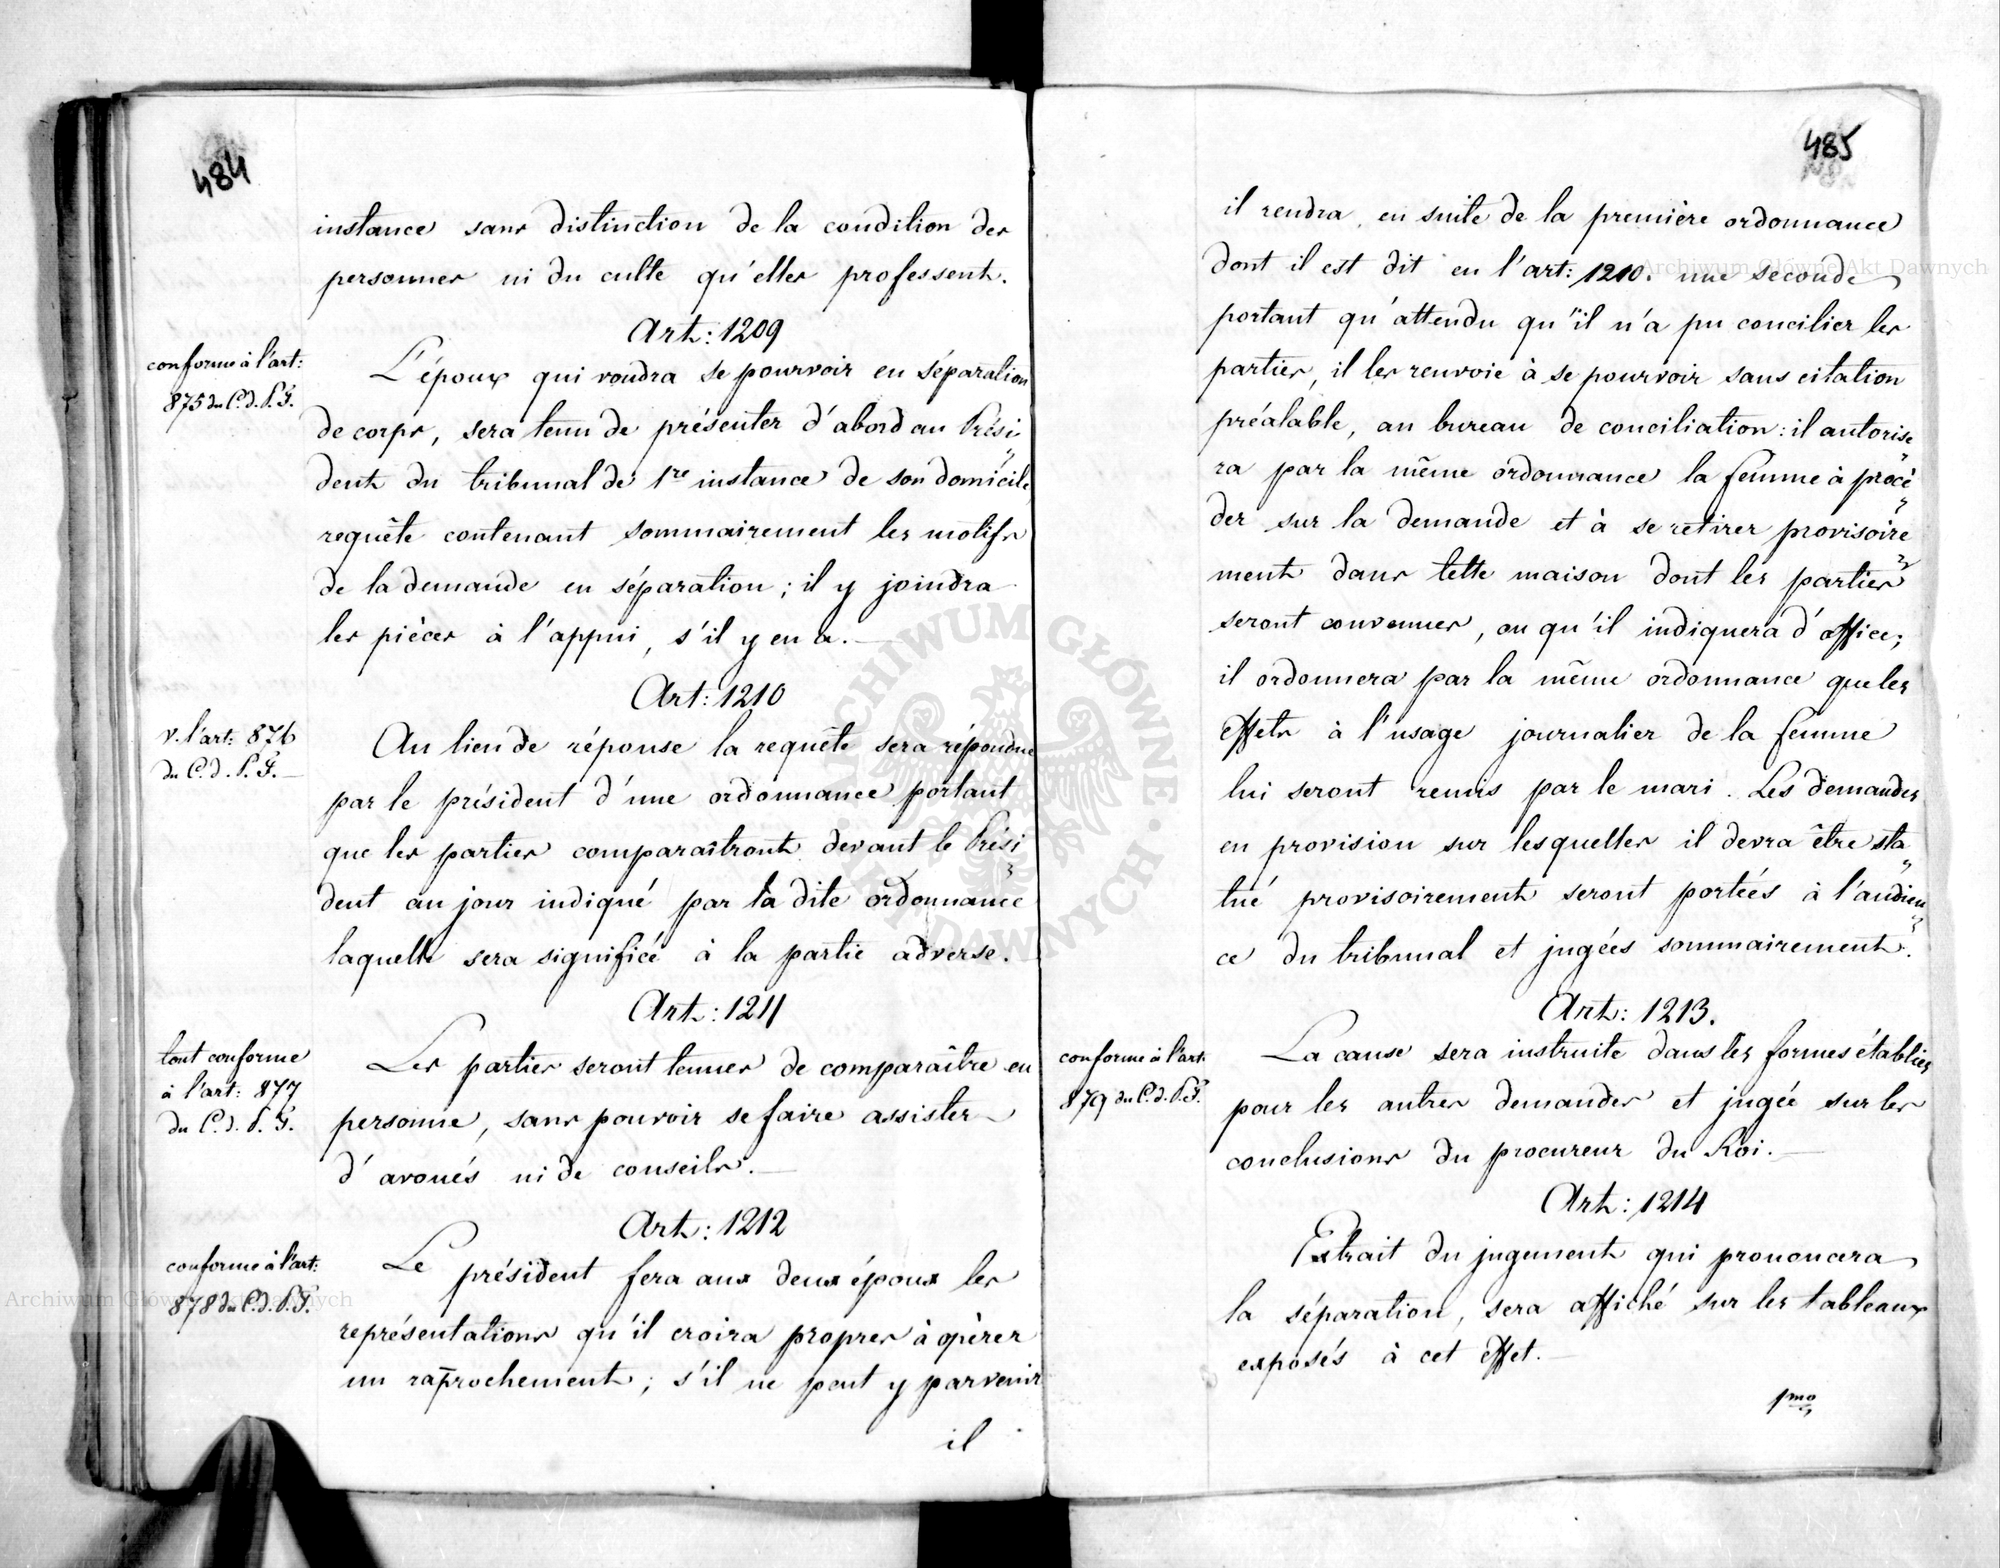 484
instance sans distinction de la condition des
personnes ni du culte qu'elles professent.
Art: 1209
conforme à l'art:
875 du C. d. P. F.
L'époux qui voudra se pourvoir en séparation
de corps, sera tenu de présenter d'abord au Prési„
dent du tribunal de 1re instance de son domicile
requête contenant sommairement les motifs
de la demande en séparation; il y joindra
les pièces à l'appui, s'il y en a.—
Art: 1210
v. l'art: 876
du C. d. P. F.—
Au lieu de réponse la requête sera répondue
par le président d'une ordonnance portant
que les parties comparaîtront devant le Prési„
dent au jour indiqué par la dite ordonnance
laquelle sera significé à la partie adverse.
Art: 1211
tout conforme
à l'art: 877
du C. d. P. F.
Les parties seront tenues de comparaître en
personne, sans pouvoir se faire assister
d'avoués ni de conseils.—
Art: 1212
conforme à l'art:
878 du C. d. P. F.
Le président fera aux deux époux les
représentations qu'il croira propres à opèrer
un raprochement; s'il ne peut y parvenir
il
485
il rendra en suite de la première ordonnance
dont il est dit en l'art: 1210. une seconde
portant qu'attendu qu'il n'a pu concilier les
parties, il les renvoie à se pourvoir sans citation
préalable, au bureau de conciliation: il autorise„
ra par la même ordonnance la femme à procé„
der sur la demande et à se retirer provisoire„
ment dans telle maison dont les parties
seront convenues, ou qu'il indiquera d'office;
il ordonnera par la même ordonnance que les
effets à l'usage journalier de la femme
lui seront remis par le mari. Les demandes
en provision sur lesquelles il devra être sta„
tué provisoirement seront portées à l'audien„
ce du tribunal et jugées sommairement.
Art: 1213.
conforme à l'art:
879 du C. d. P. F.
La cause sera instruite dans les formes établies
pour les autres demandes et jugée sur les
conclusions du procureur du Roi.—
Art: 1214
Extrait du jugement qui prononcera
la séparation, sera affiché sur les tableaux
exposés à cet effet.—
1mo
Archiwum Główne Akt Dawnych
Archiwum Główne Akt Dawnych
ARCHIWUM GŁÓWNE AKT DAWNYCH